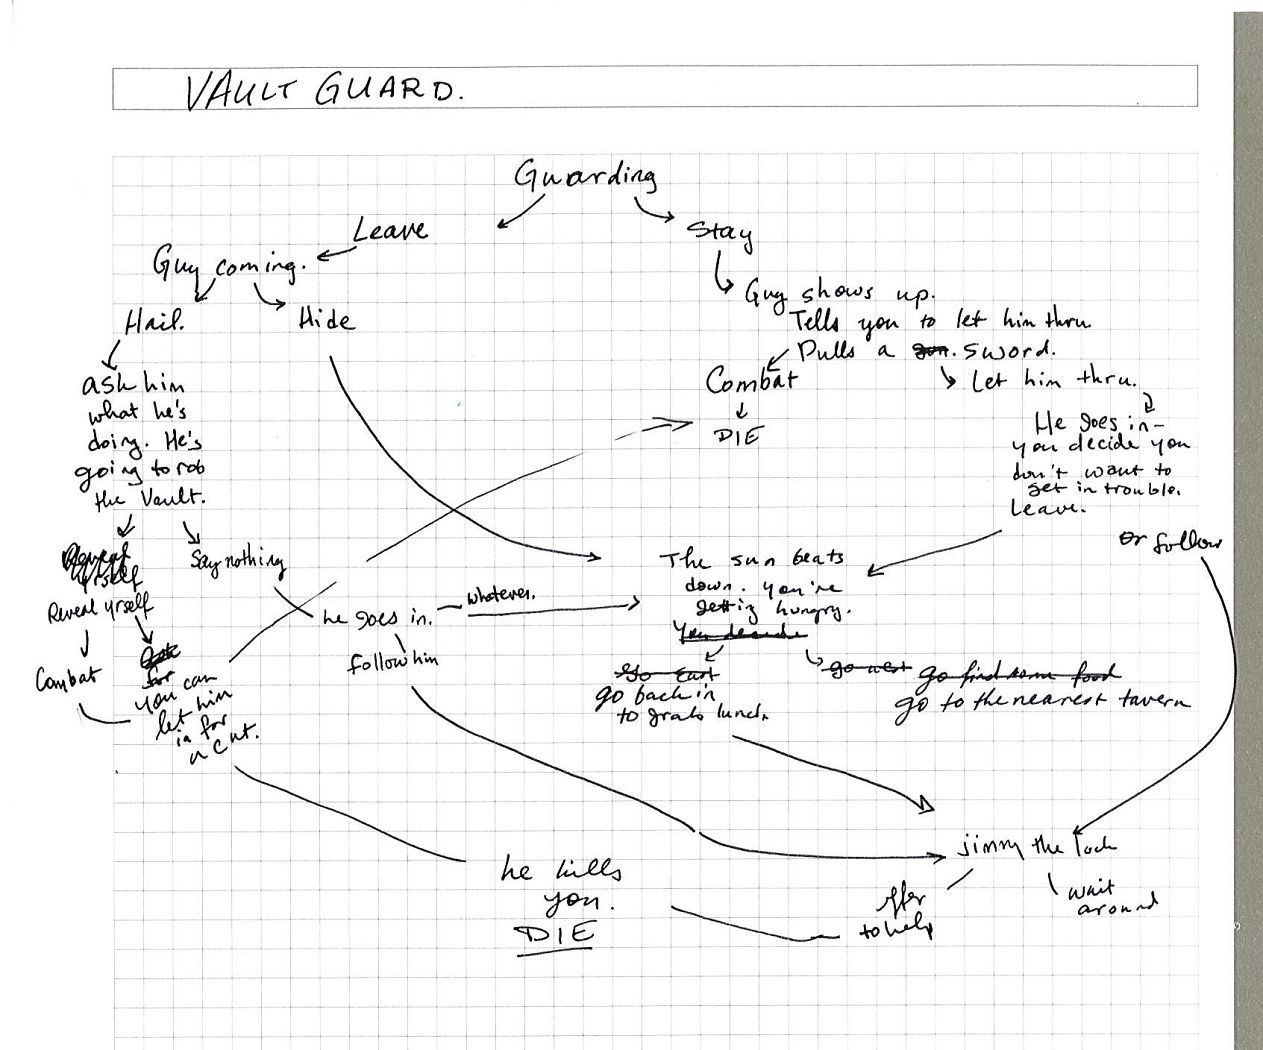 VAULT GUARD.
Guarding
Leave
Stay
Guy coming.
Guy shows up.
Tells you to let him thru
Pulls a gun. sword.
Hail.
Hide
Combat
DIE
Let him thru.
ask him
what he's
doing. He's
going to rob
the Vault.
He goes in -
you decide you
don't want to
get in trouble.
Leave.
or follow
Reveal
yrself
Reveal yrself
Say nothing
he goes in.
whatever.
follow him
The sun beats
down. you're
getting hungry.
You decide
Combat
you can
let him
in for
a cut.
go east
go back in
to grab lunch.
go west go find some food
go to the nearest tavern
he kills
you.
DIE
jimmy the lock
offer
to help
wait
around